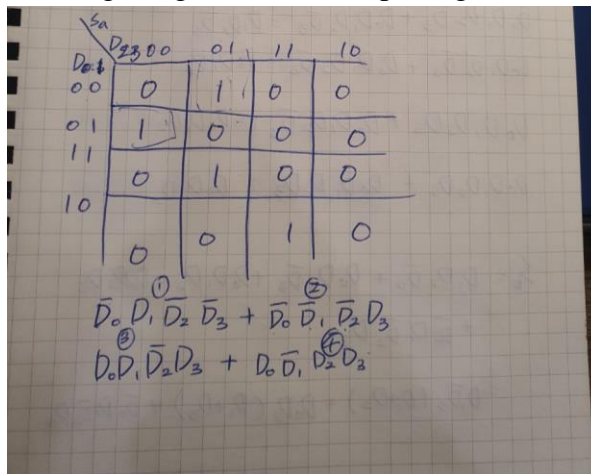 Sa
D₂₃ 00 01 11 10
D₀.₁
00 0 1 0 0
01 1 0 0 0
11 0 1 0 0
10 0 0 1 0
① ②
D̅₀ D₁ D̅₂ D̅₃ + D̅₀ D̅₁ D̅₂ D₃
③ ④
D₀ D₁ D̅₂ D₃ + D₀ D̅₁ D₂ D₃